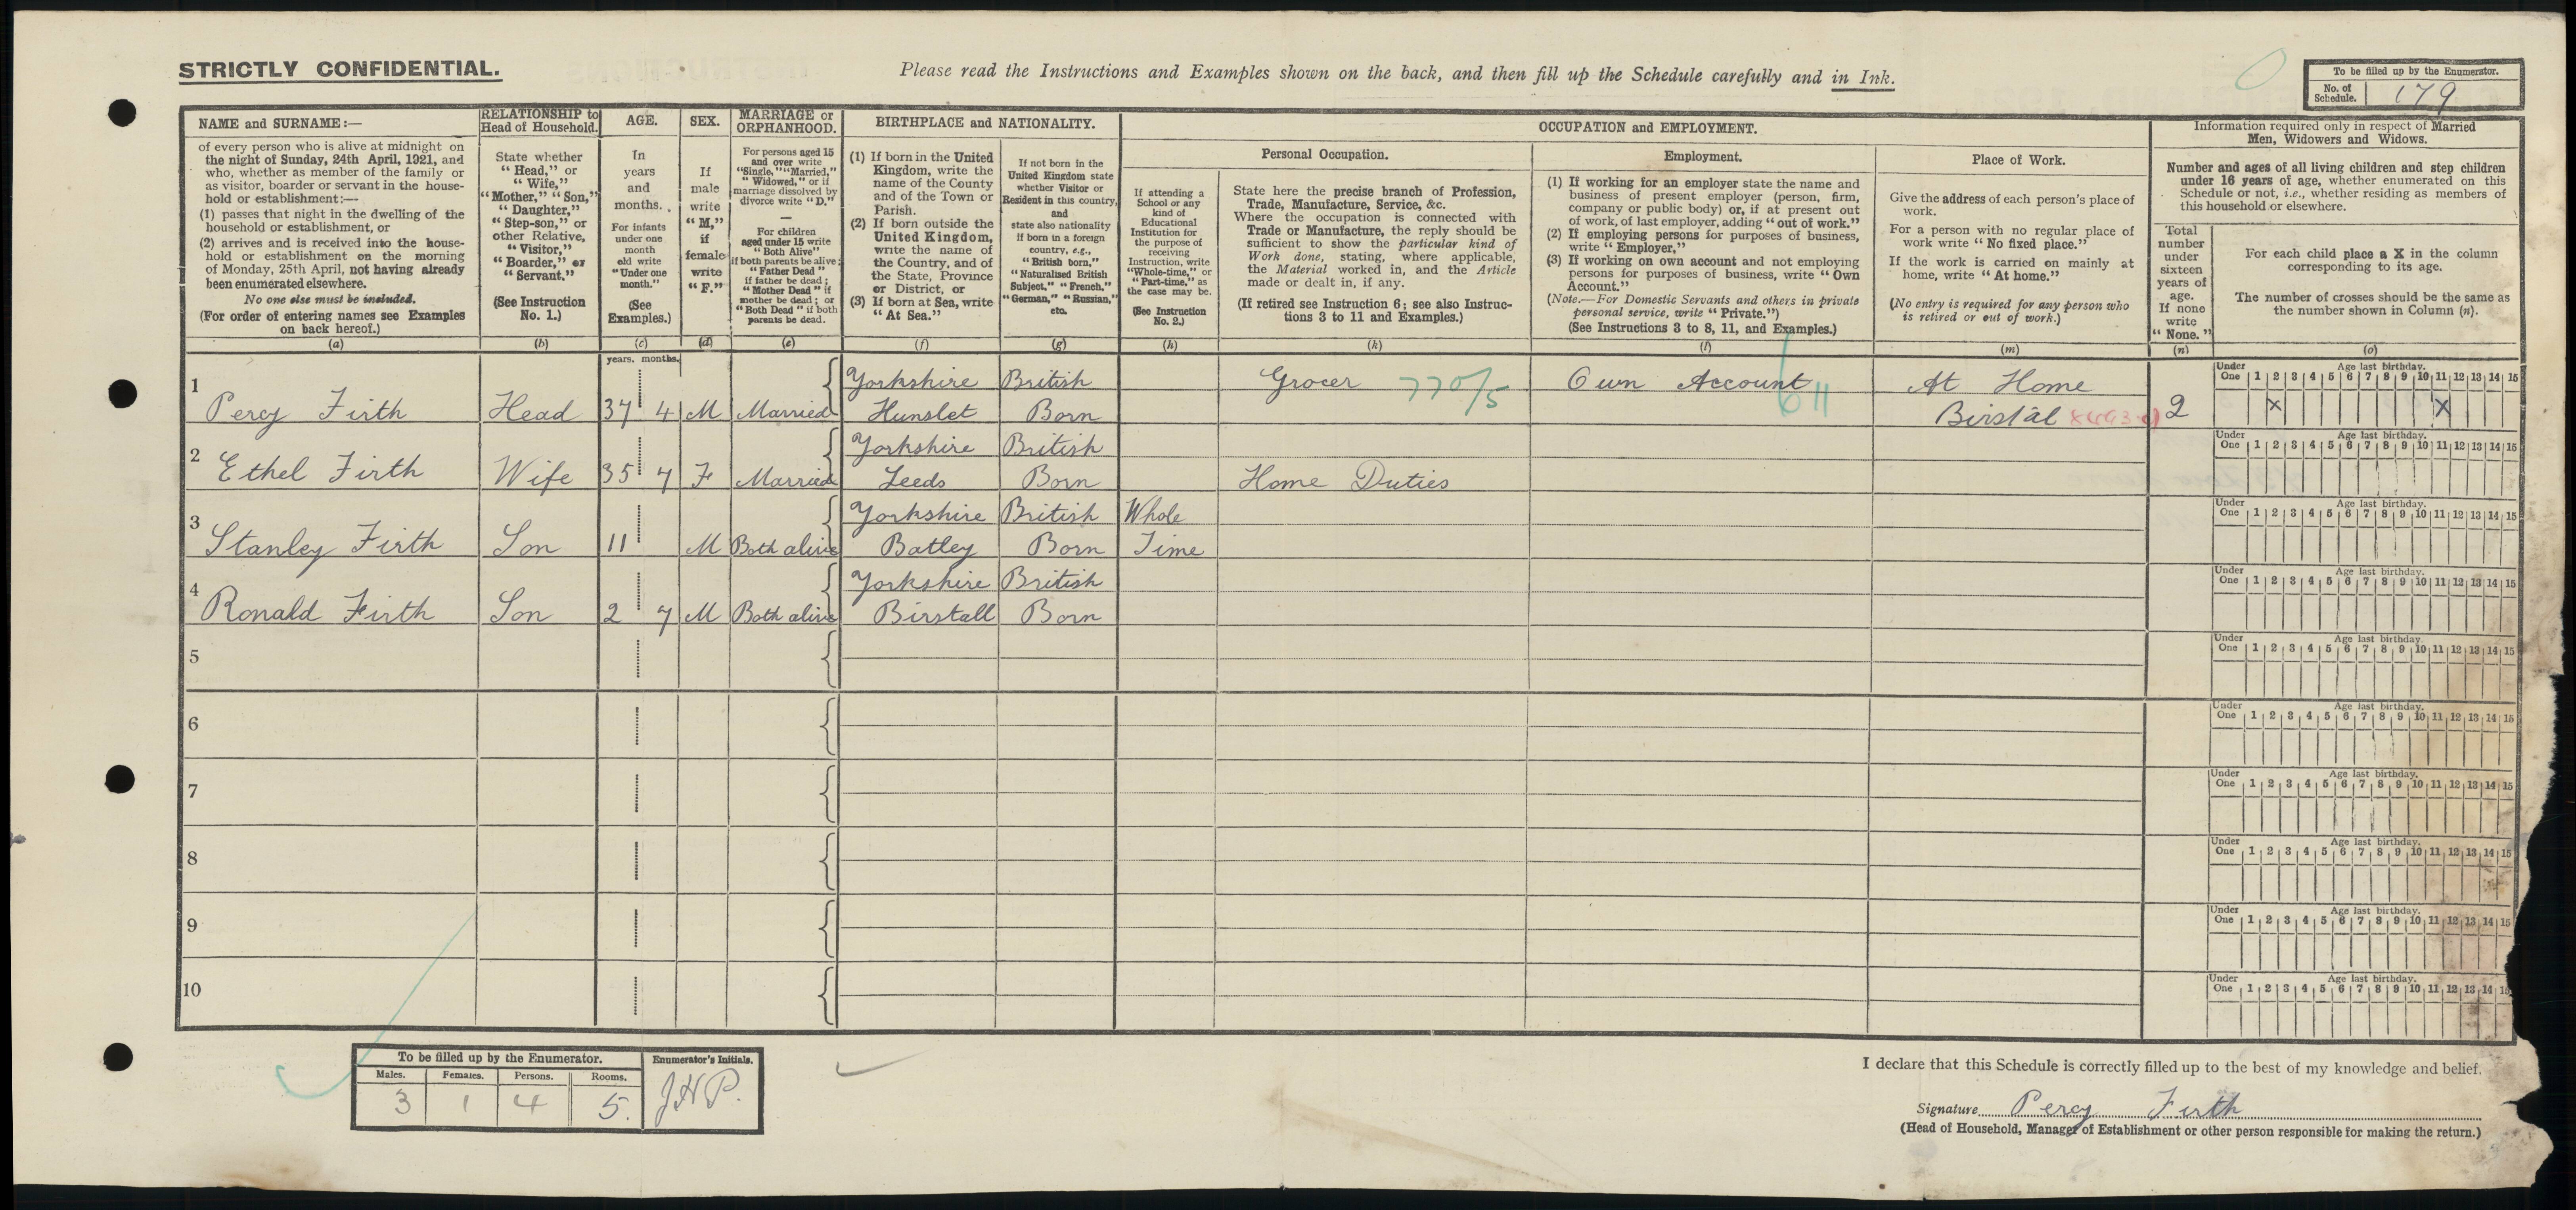 STRICTLY CONFIDENTIAL.
Please read the Instructions and Examples shown on the back, and then fill up the Schedule carefully and in Ink.
To be filled up by the Enumerator.
No. of Schedule. 179
NAME and SURNAME:—
of every person who is alive at midnight on
the night of Sunday, 24th April, 1921, and
who, whether as member of the family or
as visitor, boarder or servant in the house-
hold or establishment:—
(1) passes that night in the dwelling of the
household or establishment, or
(2) arrives and is received into the house-
hold or establishment on the morning
of Monday, 25th April, not having already
been enumerated elsewhere.
No one else must be included.
(For order of entering names see Examples
on back hereof.)
(a)
RELATIONSHIP to
Head of Household.
State whether
"Head," or
"Wife,"
"Mother," "Son,"
"Daughter,"
"Step-son," or
other Relative,
"Visitor,"
"Boarder," or
"Servant."
(See Instruction
No. 1.)
(b)
AGE.
In
years
and
months.
For infants
under one
month
old write
"Under one
month."
(See
Examples.)
(c)
SEX.
If
male
write
"M,"
if
female
write
"F."
(d)
MARRIAGE or
ORPHANHOOD.
For persons aged 15
and over write
"Single," "Married,"
"Widowed," or if
marriage dissolved by
divorce write "D."
—
For children
aged under 15 write
"Both Alive"
if both parents be alive;
"Father Dead"
if father be dead;
"Mother Dead" if
mother be dead; or
"Both Dead" if both
parents be dead.
(e)
BIRTHPLACE and NATIONALITY.
(1) If born in the United
Kingdom, write the
name of the County
and of the Town or
Parish.
(2) If born outside the
United Kingdom,
write the name of
the Country, and of
the State, Province
or District, or
(3) If born at Sea, write
"At Sea."
(f)
If not born in the
United Kingdom state
whether Visitor or
Resident in this country,
and
state also nationality
if born in a foreign
country, e.g.,
"British born,"
"Naturalised British
Subject," "French,"
"German," "Russian,"
etc.
(g)
OCCUPATION and EMPLOYMENT.
Personal Occupation.
If attending a
School or any
kind of
Educational
Institution for
the purpose of
receiving
Instruction, write
"Whole-time," or
"Part-time," as
the case may be.
(See Instruction
No. 2.)
(h)
State here the precise branch of Profession,
Trade, Manufacture, Service, &c.
Where the occupation is connected with
Trade or Manufacture, the reply should be
sufficient to show the particular kind of
Work done, stating, where applicable,
the Material worked in, and the Article
made or dealt in, if any.
(If retired see Instruction 6; see also Instruc-
tions 3 to 11 and Examples.)
(k)
Employment.
(1) If working for an employer state the name and
business of present employer (person, firm,
company or public body) or, if at present out
of work, of last employer, adding "out of work."
(2) If employing persons for purposes of business,
write "Employer."
(3) If working on own account and not employing
persons for purposes of business, write "Own
Account."
(Note.—For Domestic Servants and others in private
personal service, write "Private.")
(See Instructions 3 to 8, 11, and Examples.)
(l)
Place of Work.
Give the address of each person's place of
work.
For a person with no regular place of
work write "No fixed place."
If the work is carried on mainly at
home, write "At home."
(No entry is required for any person who
is retired or out of work.)
(m)
Information required only in respect of Married
Men, Widowers and Widows.
Number and ages of all living children and step children
under 16 years of age, whether enumerated on this
Schedule or not, i.e., whether residing as members of
this household or elsewhere.
Total
number
under
sixteen
years of
age.
If none
write
"None."
(n)
For each child place a X in the column
corresponding to its age.
The number of crosses should be the same as
the number shown in Column (n).
(o)
years. months.
Under One Age last birthday. 1 2 3 4 5 6 7 8 9 10 11 12 13 14 15
1 Yorkshire British Grocer 770/5 Own Account 611 At Home
Percy Firth Head 37 4 M Married Hunslet Born Birstal 2 X X
Under One Age last birthday. 1 2 3 4 5 6 7 8 9 10 11 12 13 14 15
2 Yorkshire British
Ethel Firth Wife 35 7 F Married Leeds Born Home Duties
Under One Age last birthday. 1 2 3 4 5 6 7 8 9 10 11 12 13 14 15
3 Yorkshire British Whole
Stanley Firth Son 11 M Both alive Batley Born Time
Under One Age last birthday. 1 2 3 4 5 6 7 8 9 10 11 12 13 14 15
4 Yorkshire British
Ronald Firth Son 2 7 M Both alive Birstall Born
5 Under One Age last birthday. 1 2 3 4 5 6 7 8 9 10 11 12 13 14 15
6 Under One Age last birthday. 1 2 3 4 5 6 7 8 9 10 11 12 13 14 15
7 Under One Age last birthday. 1 2 3 4 5 6 7 8 9 10 11 12 13 14 15
8 Under One Age last birthday. 1 2 3 4 5 6 7 8 9 10 11 12 13 14 15
9 Under One Age last birthday. 1 2 3 4 5 6 7 8 9 10 11 12 13 14 15
10 Under One Age last birthday. 1 2 3 4 5 6 7 8 9 10 11 12 13 14 15
To be filled up by the Enumerator. Enumerator's Initials.
Males. Females. Persons. Rooms.
3 1 4 5. J.H.P.
I declare that this Schedule is correctly filled up to the best of my knowledge and belief.
Signature Percy Firth
(Head of Household, Manager of Establishment or other person responsible for making the return.)